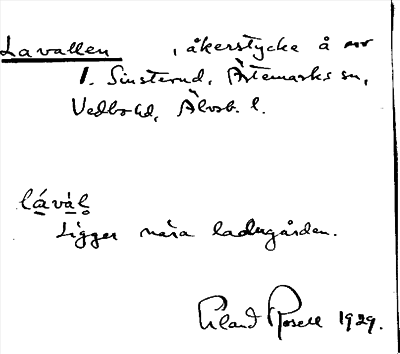 Lavallen, åkerstycke å nr
1. Sinsterud, Ärtemarks sn,
Vedbo hd, Älvsb. l.
lávàl
Ligger nära ladugården.
Erland Rosell 1929.